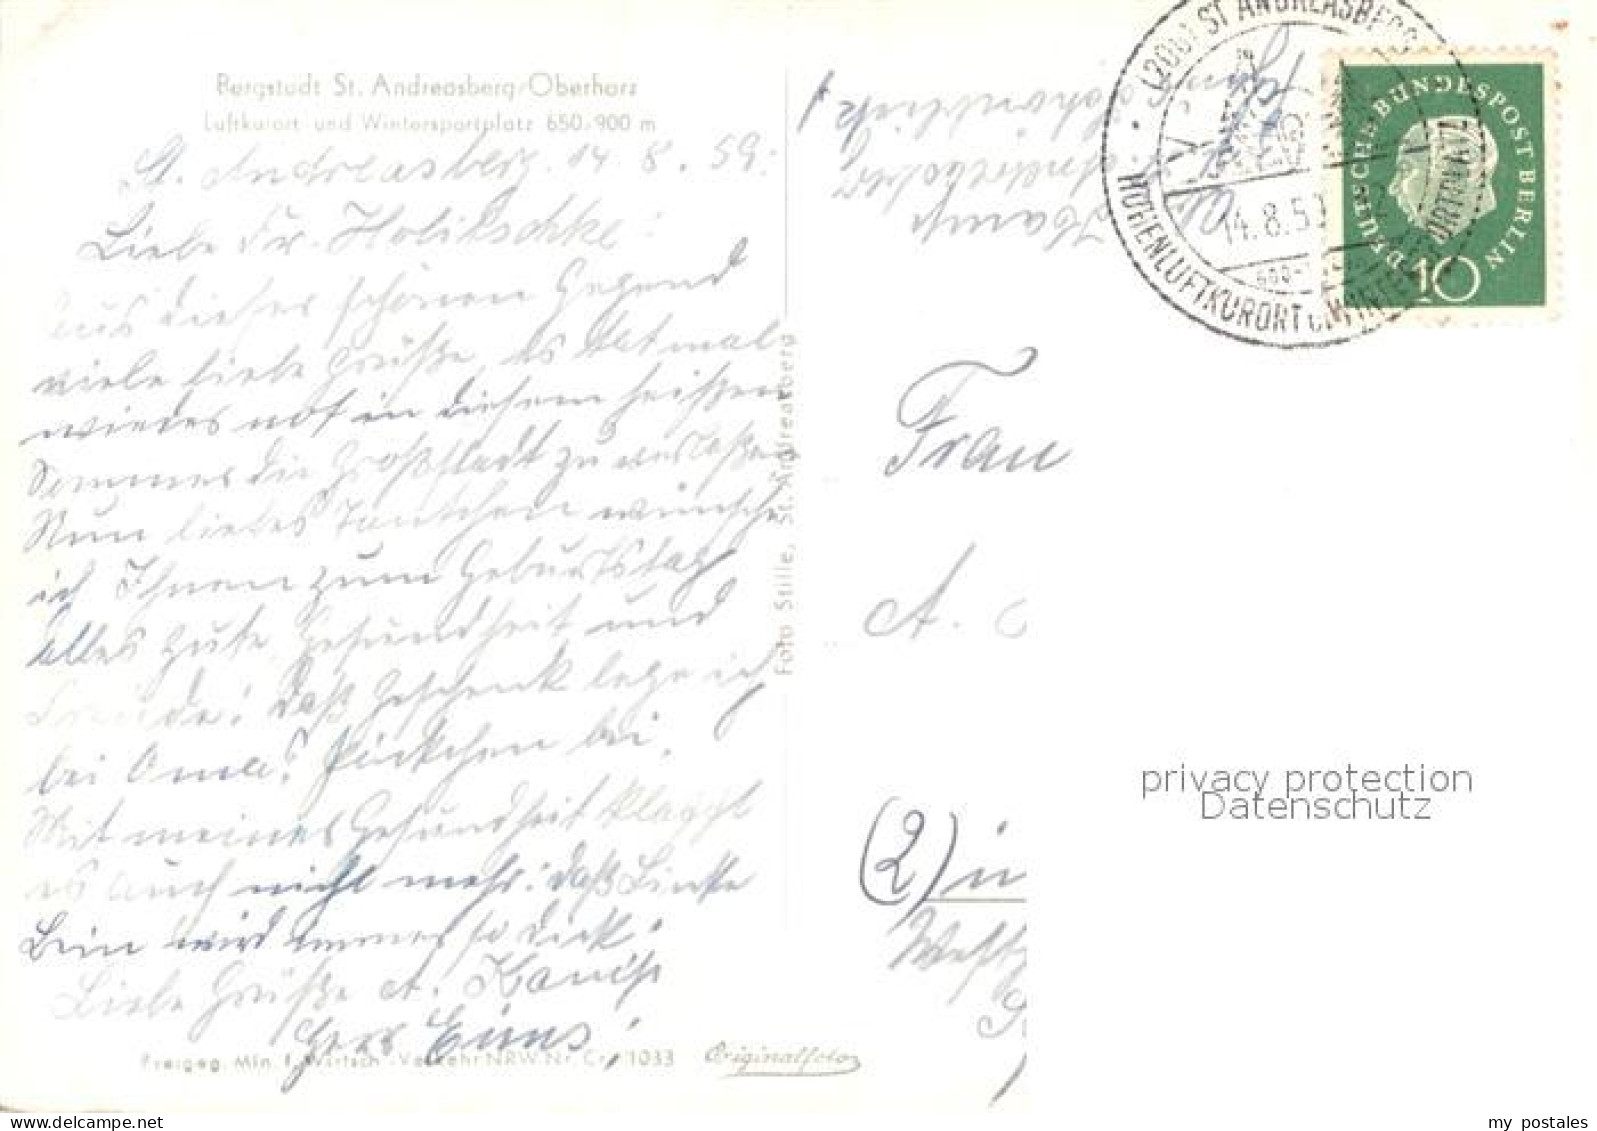 Bergstadt St. Andreasberg/Oberharz
Luftkurort und Wintersportplatz 650-900 m
St. Andreasberg. 14. 8. 59.
Liebe Fr. Holitschke!
Aus dieser schönen Gegend
viele liebe Grüße, es tat mal
wieder not in diesem heißen
Sommer die Großstadt zu verlaßen
Nun liebes Tantchen wünsche
ich Ihnen zum Geburtstag
alles gute Gesundheit und
Freude! Daß Geschenk lege ich
bei Omas Päckchen bei.
Mit meiner Gesundheit klappt
es auch nicht mehr! Daß Linke
Bein wird immer so dick!
Liebe Grüße A.
Freigeg. Min. f. Wirtsch. Verkehr NRW. Nr. Cr/1033
Originalfoto
Foto Stille, St. Andreasberg
(20b) ST ANDREASBERG
14.8.59
HÖHENLUFTKURORT u. WINTERSPORTPLATZ
DEUTSCHE BUNDESPOST BERLIN
10
Frau
A.
(2) in
privacy protection
Datenschutz
my postales